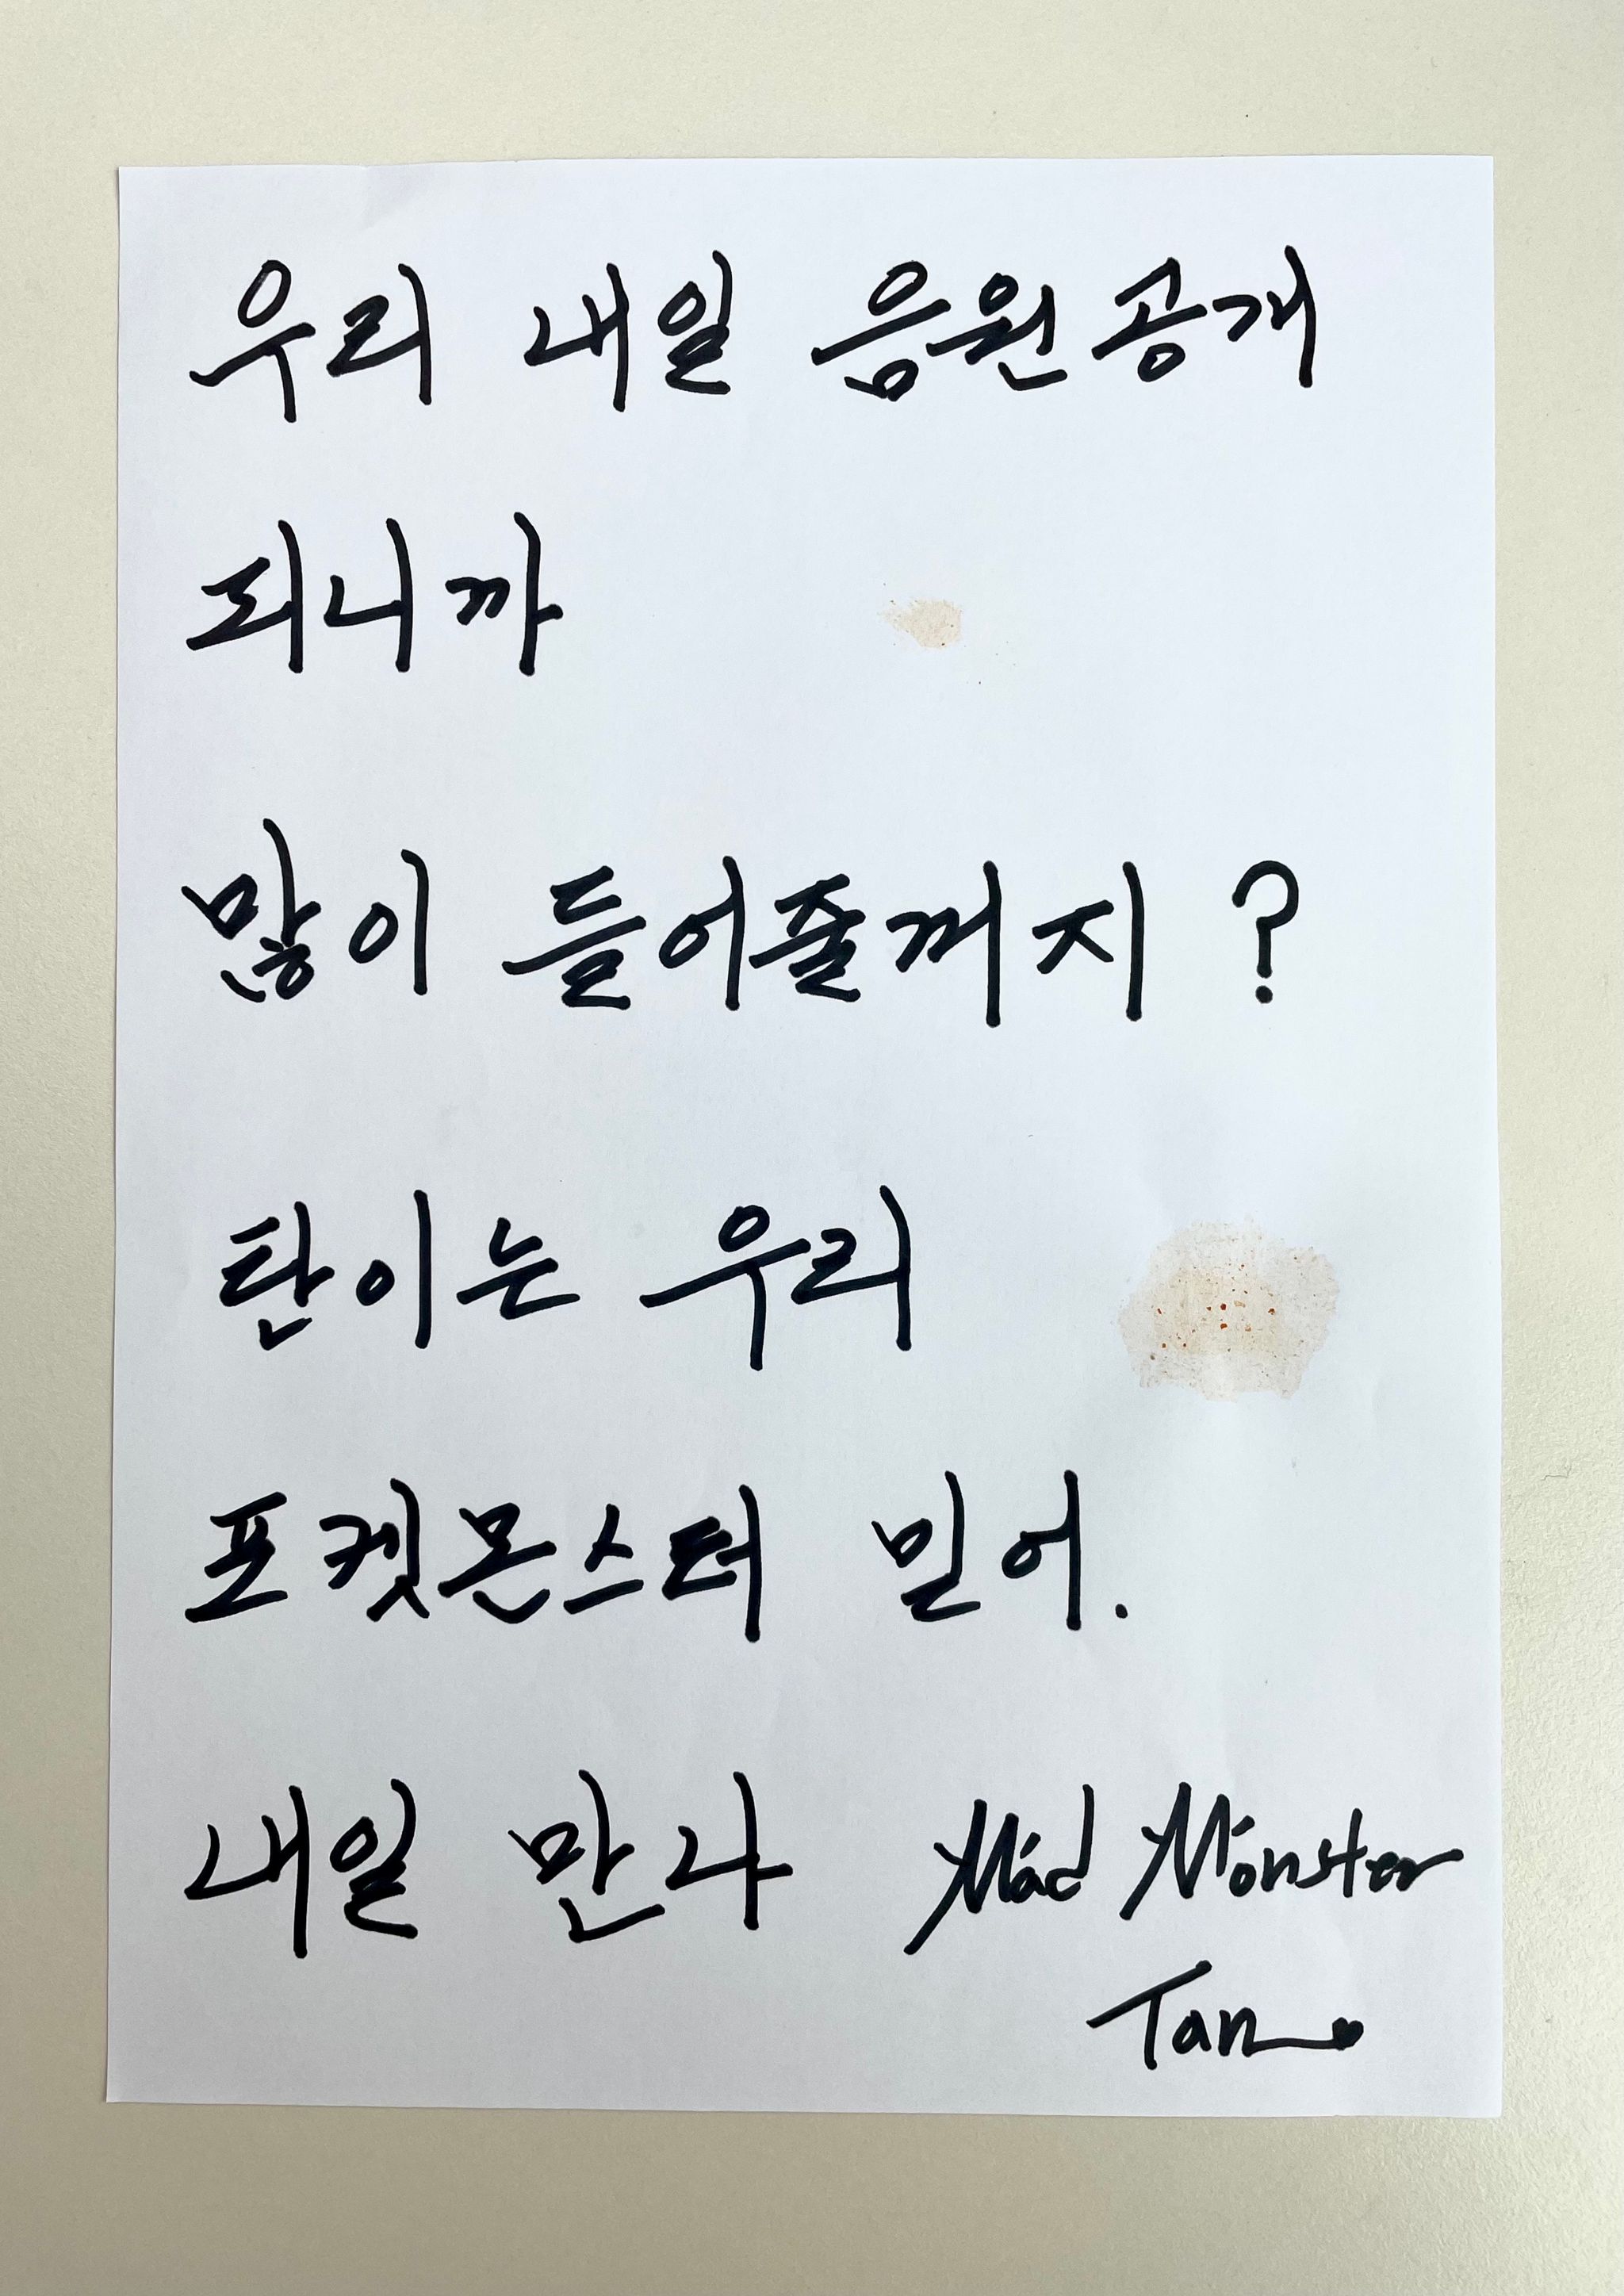 우리 내일 음원공개
되니까
많이 들어줄꺼지 ?
탄이는 우리
포켓몬스터 믿어.
내일 만나 Mad Monster
Tan